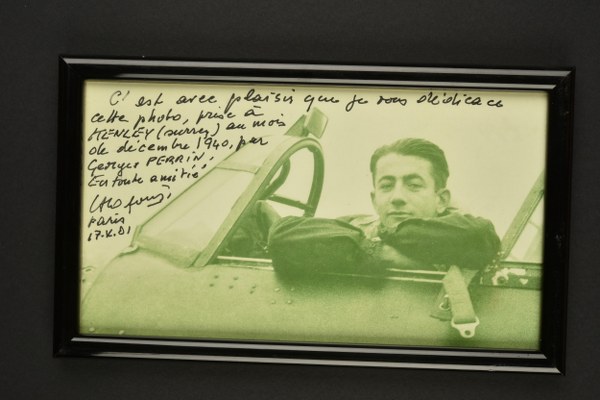 C'est avec plaisir que je vous dédicace
cette photo, prise à
HENLEY (surrey) au mois
de décembre 1940, par
Georges PERRIN.
En toute amitié
Paris
17.X.81